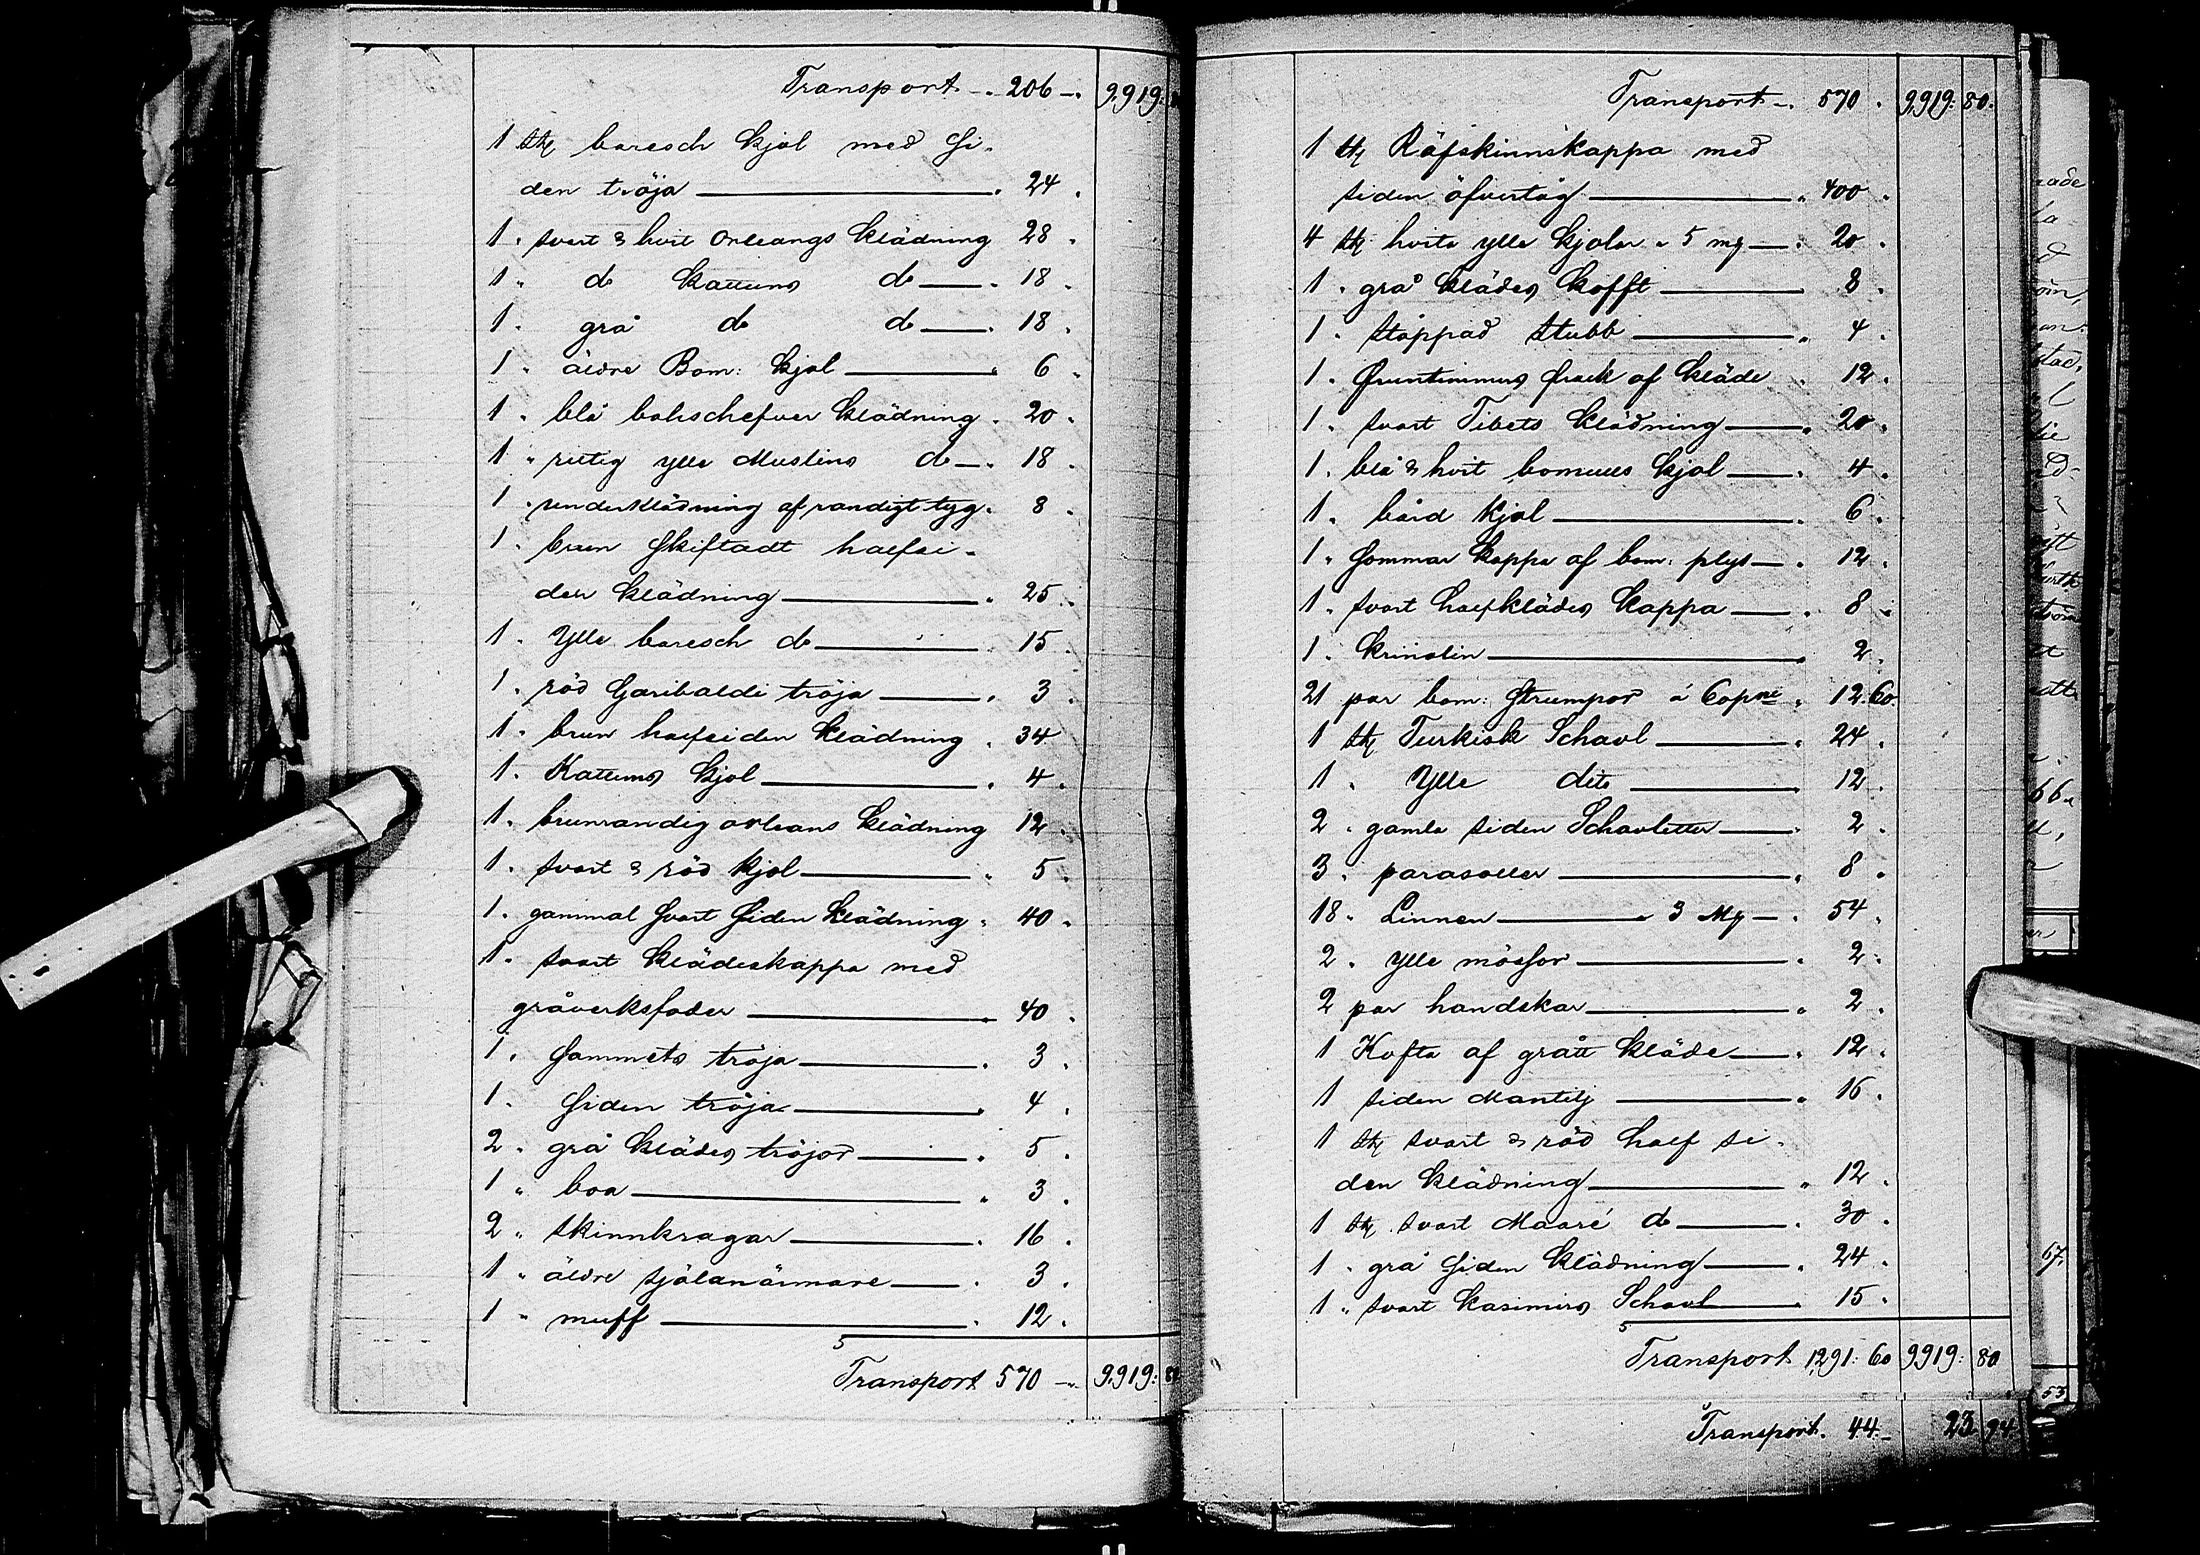 Transport - 206 - 9,919:
1 stk baresch kjol med Si-
den tröja - 24
1 " svart & hvit Orleangs Klädning 28
1 " do Kattuns do - 18
1 " grå do do - 18
1 " äldre Bom: kjol - 6
1 " blå klädning - 20
1 " rutig ylle Muslins do - 18
1 " underklädning af randigt tyg - 8
1 " brun Skiftadt halfsi-
den klädning - 25
1 " Ylle baresch do - 15
1 " röd Garibaldi tröja - 3
1 " brun halfsiden klädning - 34
1 " Kattuns kjol - 4
1 " brunrandig orleans klädning 12
1 " svart & röd kjol - 5
1 " gammal Svart Siden klädning - 40
1 " svart klädeskappa med
gråverksfoder - 40
1 " Sammets tröja - 3
1 " Siden tröja - 4
2 " grå klädes tröjor - 5
1 " boa - 3
2 " skinnkragar - 16
1 " äldre själanärmare - 3
1 " muff - 12
Transport 570 - 9,919:
Transport - 570 - 9,919: 80.
1 stk Räfskinnskappa med
siden öfvertåg - 400
4 stk hvita ylle kjolar a 5 mk - 20
1 " grå klädes Kofft - 8
1 " stoppad stubb - 4
1 " Fruntimmers frack af kläde - 12
1 " svart Tibets klädning - 20
1 " blå & hvit bomuls kjol - 4
1 " bård kjol - 6
1 " Sommar kappa af bom: plys - 12
1 " svart halfklädes kappa - 8
1 " krinolin - 2
21 par bom: Strumpor á 60pni - 12.60.
1 stk Turkisk Schavl - 24
1 " Ylle dito - 12
2 " gamla siden Schavletter - 2
3 " parasoller - 8
18 " Linnen - a 3 Mk - 54
2 " ylle mössor - 2
2 par handskar - 2
1 Kofta af grått kläde - 12
1 siden Mantilj - 16
1 stk svart & röd half si-
den klädning - 12
1 stk svart Maaré do - 30
1 " grå Siden klädning - 24
1 " svart Kasimirs Schavl - 15
Transport 1,291: 60 9919: 80
Transport. 44 - 23 94